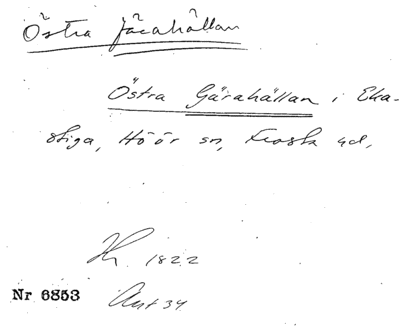 Östra Järahällan
Östra Gärahällan i Eka-
stiga, Höör sn, Frosta hd,
H. 1822
Nr 6853
Ant 34